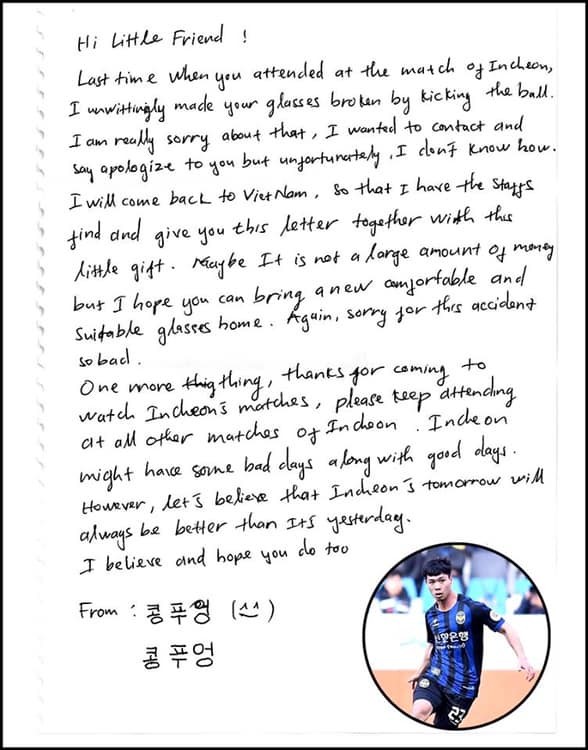 Hi Little Friend !
Last time when you attended at the match of Incheon,
I unwittingly made your glasses broken by kicking the ball.
I am really sorry about that, I wanted to contact and
say apologize to you but unfortunately, I don't know how.
I will come back to VietNam, so that I have the staffs
find and give you this letter together with this
little gift. Maybe It is not a large amount of money
but I hope you can bring a new comfortable and
suitable glasses home. Again, sorry for this accident
so bad.
One more thing, thanks for coming to
watch Incheon's matches, please keep attending
at all other matches of Incheon. Incheon
might have some bad days along with good days.
However, let's believe that Incheon's tomorrow will
always be better than Its yesterday.
I believe and hope you do too
From : 콩푸엉 (^^)
콩푸엉
신한은행
23